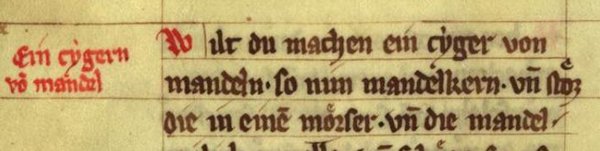 Ein cẏgern
vō mandel
Wilt du machen ein cẏger von
mandeln · so nim mandelkern · vn̄ stoͤz
die in einē moͤrser · vn̄ die mandel